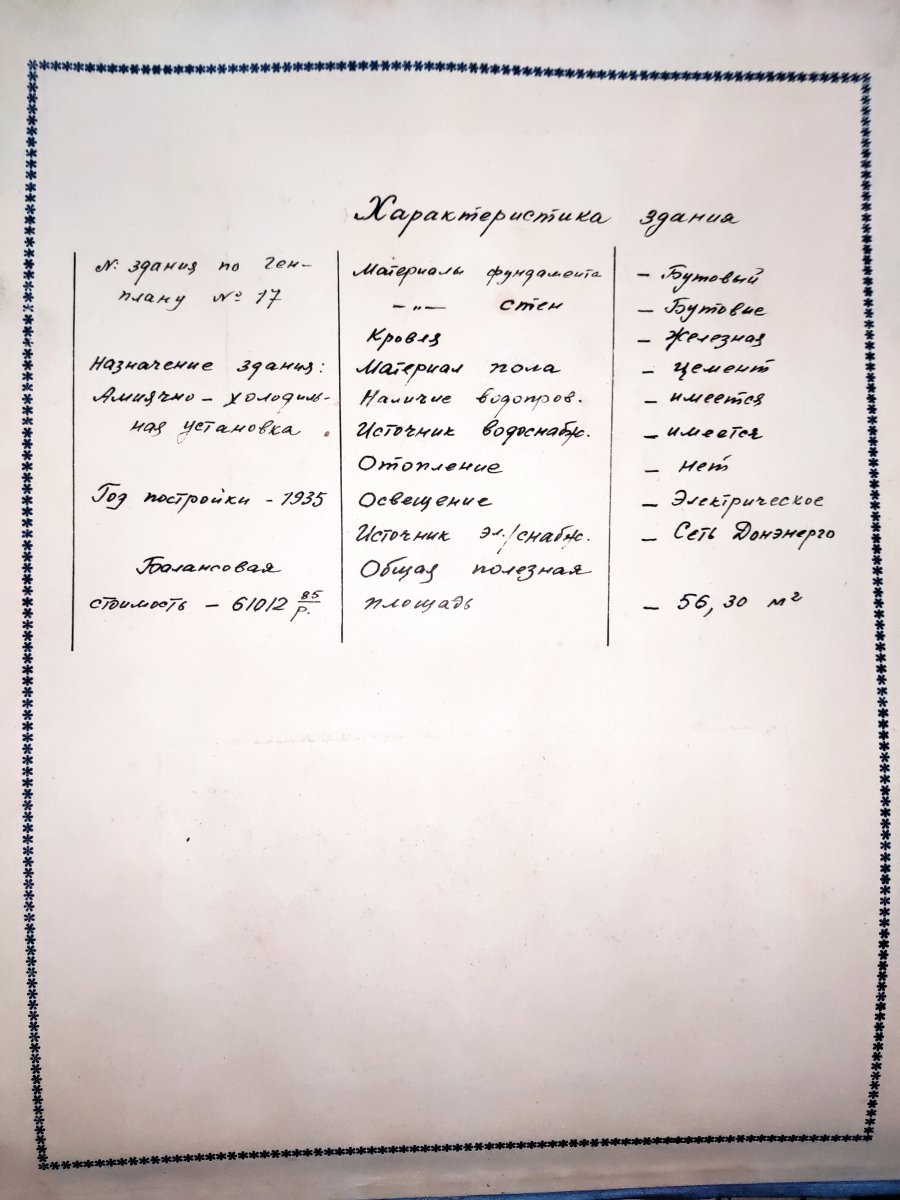 Характеристика здания
№ здания по Ген-
плану № 17
Назначение здания:
Амиячно - холодиль-
ная установка.
Год постройки - 1935
Балансовая
стоимость - 61012 85/р.
Материалы фундамента - Бутовый
-"- стен - Бутовые
Кровля - Железная
Материал пола - Цемент
Наличие водопров. - имеется
Источник водоснабж. - имеется
Отопление - нет
Освещение - Электрическое
Источник эл./снабж. - Сеть Донэнерго
Общая полезная
площадь - 56,30 м²